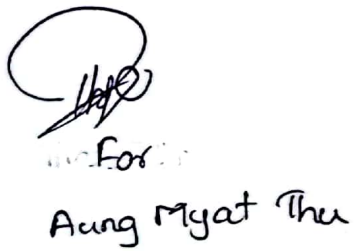 For
Aung Myat Thu